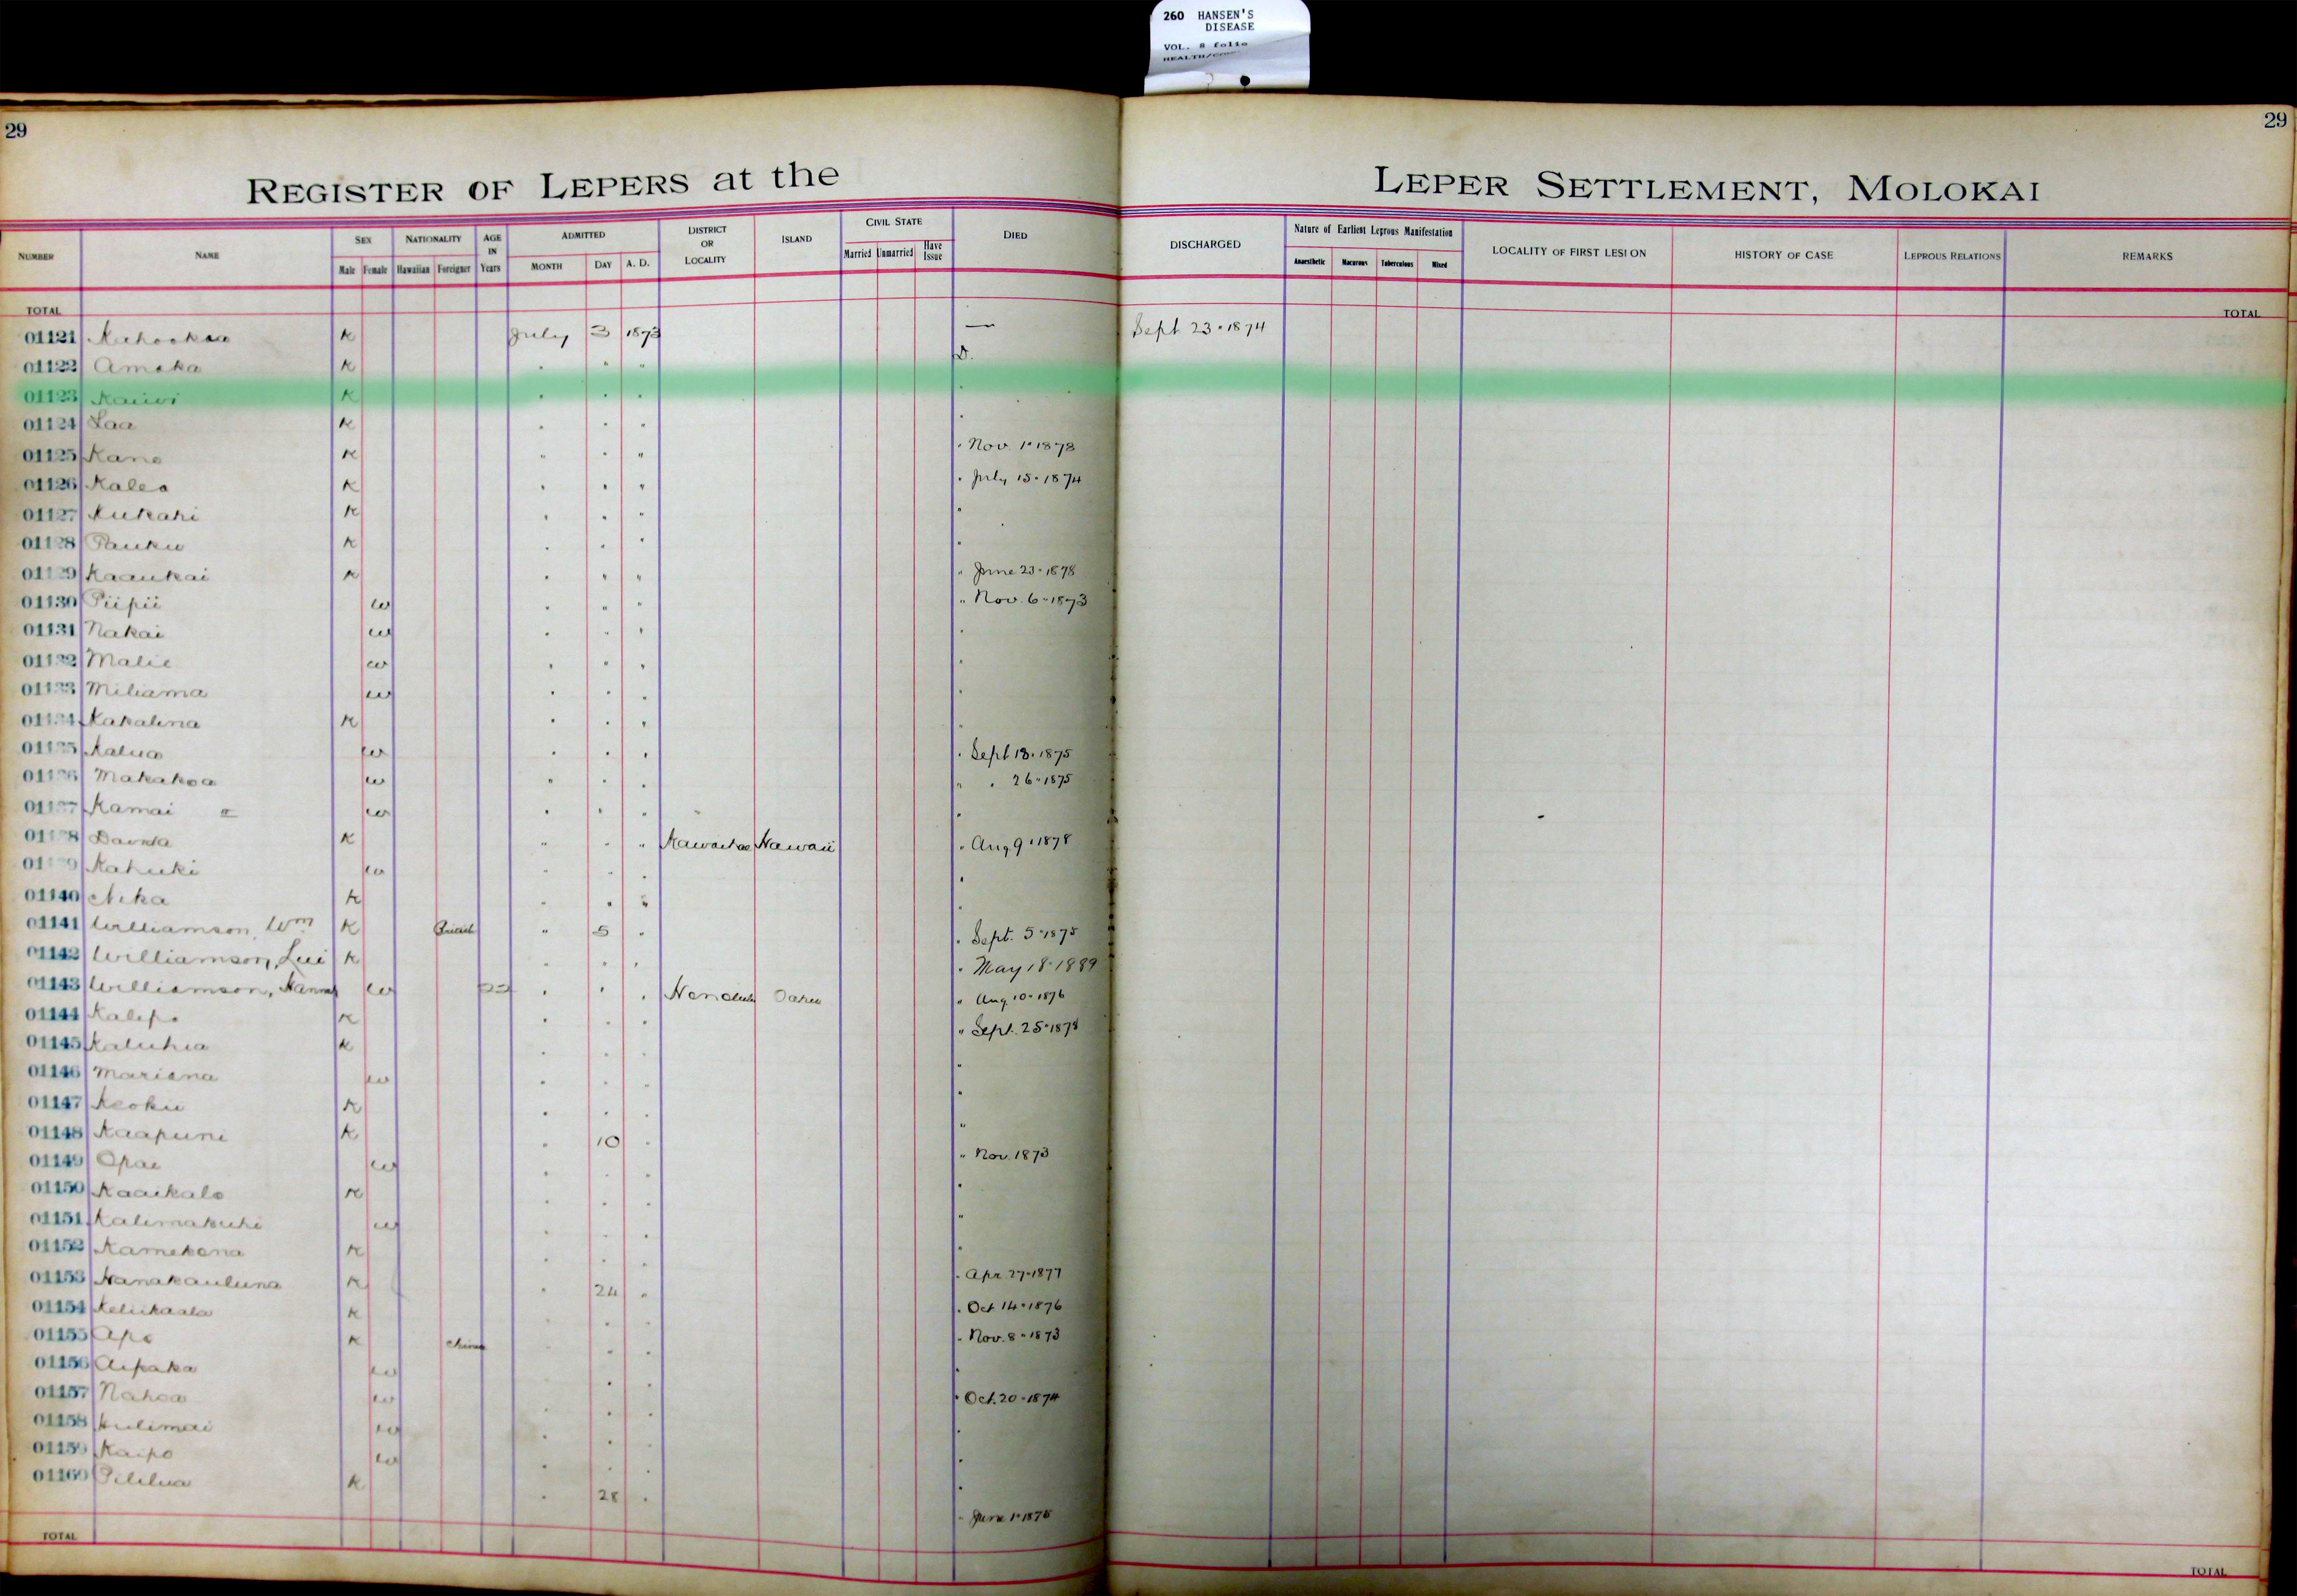 260 HANSEN'S
DISEASE
VOL. 8 folio
29
29
REGISTER OF LEPERS at the LEPER SETTLEMENT, MOLOKAI
NUMBER NAME SEX NATIONALITY AGE IN Years ADMITTED DISTRICT OR LOCALITY ISLAND CIVIL STATE DIED DISCHARGED Nature of Earliest Leprous Manifestation LOCALITY OF FIRST LESION HISTORY OF CASE LEPROUS RELATIONS REMARKS
Male Female Hawaiian Foreigner MONTH DAY A. D. Married Unmarried Have Issue Anaesthetic Macurous Tuberculous Mixed
TOTAL TOTAL
01121 K July 3 1873 — Sept 23 · 1874
01122 Amaka K " " " D.
01123 Kaiwi K " " " "
01124 Laa K " " " "
01125 Kane K " " " " Nov. 1 · 1878
01126 Kalea K " " " " July 15 · 1874
01127 Kukahi K " " " "
01128 Pauku K " " " "
01129 Kaaukai K " " " " June 23 · 1878
01130 Piipii W " " " " Nov. 6 · 1873
01131 Nakai W " " " "
01132 Malie W " " " "
01133 Miliama W " " " "
01134 Kakalina K " " " "
01135 Kalua W " " " " Sept 18 · 1875
01136 Makakoa W " " " " " 26 · 1875
01137 Kamai W " " " "
01138 K " " " Kawaihae Hawaii " Aug 9 · 1878
01139 Kahuki W " " " "
01140 Nika K " " " "
01141 Williamson, Wm K British " 5 " " Sept. 5 · 1875
01142 Williamson, Lui K " " " " May 18 · 1889
01143 Williamson, Hannah W " " " Honolulu Oahu " Aug. 10 · 1876
01144 Kalepo K " " " " Sept. 25 · 1878
01145 Kaluhia K " " " "
01146 Mariana W " " " "
01147 Keoku K " " " "
01148 Kaapuni K " 10 " "
01149 Opae W " " " " Nov. 1873
01150 Kaaikalo K " " " "
01151 Kalimakuhi W " " " "
01152 Kamekona K " " " "
01153 Nanakauluna K " 24 " " Apr 27 · 1877
01154 Keliikaala K " " " " Oct 14 · 1876
01155 Apo K China " " " " Nov. 8 · 1873
01156 Aipaka W " " " "
01157 Nahoa W " " " " Oct. 20 · 1874
01158 Kulimai W " " " "
01159 Kaipo W " " " "
01160 Pililua K " 28 " " June 1 · 1875
TOTAL TOTAL